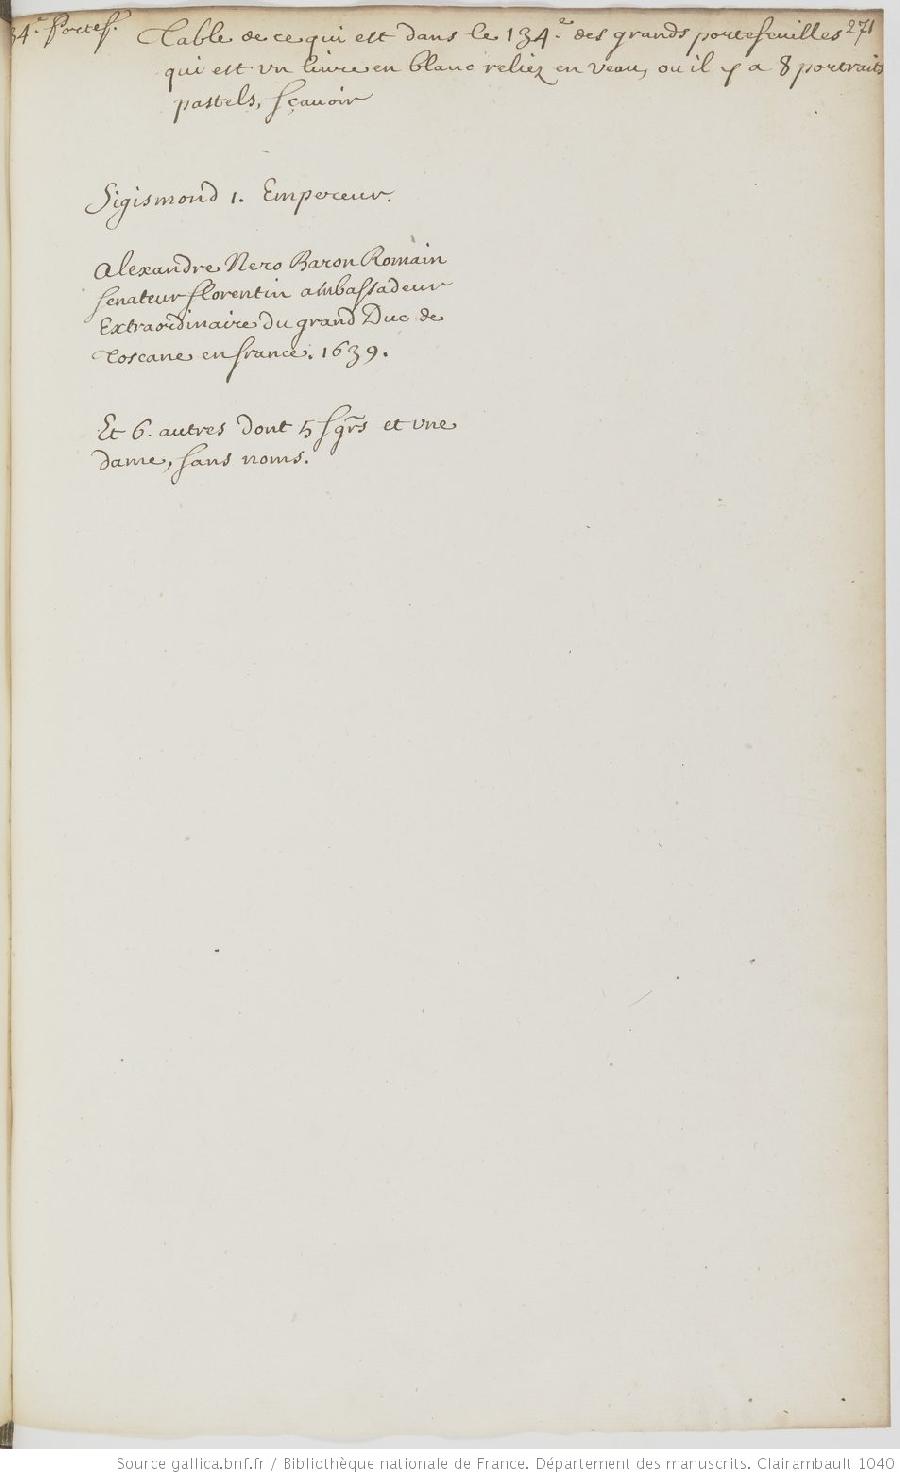 34.e Portef. Table de ce qui est dans le 134.e des grands portefeuilles 271
qui est vn liure en blanc reliez en veau, ou il y a 8 portraits
pastels, sçauoir
Sigismond 1. Empereur.
Alexandre Nero Baron Romain
senateur florentin ambassadeur
Extraordinaire du grand Duc de
Toscane en france. 1639.
Et 6. autres dont 5 sgrs et vne
dame, sans noms.
Source gallica.bnf.fr / Bibliothèque nationale de France. Département des manuscrits. Clairambault 1040